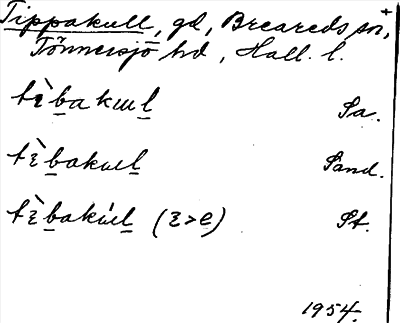 Tippakull, gd, Breareds sn,
Tönnersjö hd, Hall. l.
tɛ̀bakɯl Sa.
tɛ̀bakɯl Sand.
tɛ̀bakɯ́l (ɛ>e) St.
1954.